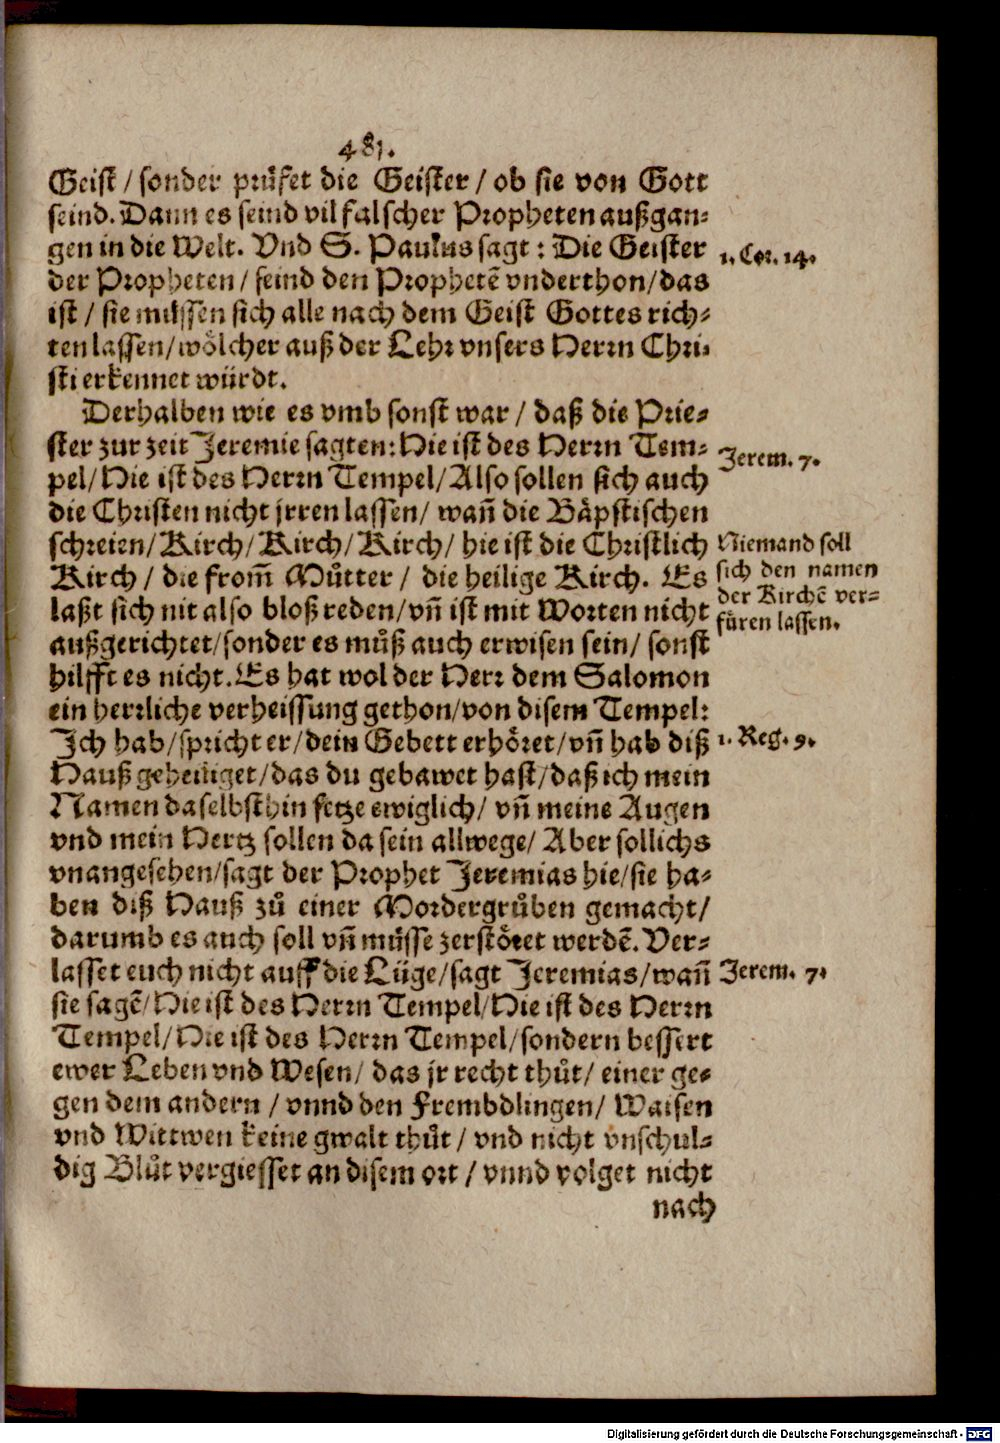 481.
Geist / sonder průfet die Geister / ob sie von Gott
seind. Dann es seind vil falscher Propheten außgan⸗
gen in die Welt. Vnd S. Paulus sagt : Die Geister
1. Cor. 14.
der Propheten / seind den Prophetē vnderthon / das
ist / sie müssen sich alle nach dem Geist Gottes rich⸗
ten lassen / wölcher auß der Lehr vnsers Herrn Chri⸗
sti erkennet würdt.
Derhalben wie es vmb sonst war / daß die Prie⸗
ster zur zeit Jeremie sagten: Hie ist des Herrn Tem⸗
Jerem. 7.
pel / Hie ist des Herrn Tempel / Also sollen sich auch
die Christen nicht jrren lassen / wañ die Bäpstischen
schreien / Kirch / Kirch / Kirch / hie ist die Christlich
Niemand soll
sich den namen
der Kirchē ver⸗
füren lassen.
Kirch / die from̄ Můtter / die heilige Kirch. Es
laßt sich nit also bloß reden / vñ ist mit Worten nicht
außgerichtet / sonder es můß auch erwisen sein / sonst
hilfft es nicht. Es hat wol der Herr dem Salomon
ein herrliche verheissung gethon / von disem Tempel:
Ich hab / spricht er / dein Gebett erhöret / vñ hab diß
1. Reg. 9.
Hauß geheiliget / das du gebawet hast / daß ich mein
Namen daselbsthin setze ewiglich / vñ meine Augen
vnd mein Hertz sollen da sein allwege / Aber sollichs
vnangesehen / sagt der Prophet Jeremias hie / sie ha⸗
ben diß Hauß zů einer Mordergrůben gemacht /
darumb es auch soll vñ müsse zerstöret werdē. Ver⸗
lasset euch nicht auff die Lüge / sagt Jeremias / wañ
Jerem. 7.
sie sagē / Hie ist des Herrn Tempel / Hie ist des Herrn
Tempel / Hie ist des Herrn Tempel / sondern bessert
ewer Leben vnd Wesen / das jr recht thůt / einer ge⸗
gen dem andern / vnnd den Frembdlingen / Waisen
vnd Wittwen keine gwalt thůt / vnd nicht vnschul⸗
dig Blůt vergiesset an disem ort / vnnd volget nicht
nach
Digitalisierung gefördert durch die Deutsche Forschungsgemeinschaft - DFG